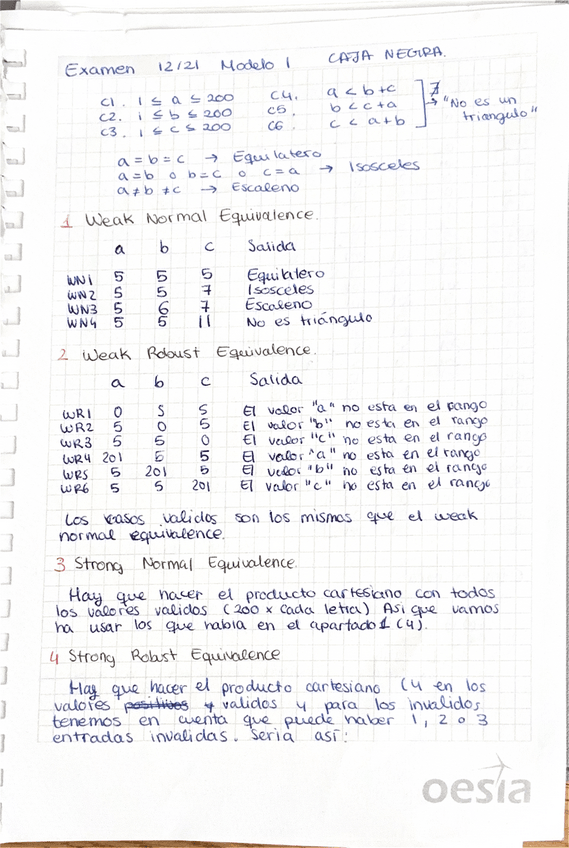 Examen 12/21 Modelo 1 CAJA NEGRA.
C1. 1 ≤ a ≤ 200 C4. a < b+c
C2. 1 ≤ b ≤ 200 C5. b < c+a → "No es un triangulo"
C3. 1 ≤ c ≤ 200 C6. c < a+b
a = b = c → Equilatero
a = b o b = c o c = a → Isosceles
a ≠ b ≠ c → Escaleno
1 Weak Normal Equivalence.
a b c Salida
WN1 5 5 5 Equilatero
WN2 5 5 7 Isosceles
WN3 5 6 7 Escaleno
WN4 5 5 11 No es triángulo
2 Weak Robust Equivalence.
a b c Salida
WR1 0 5 5 El valor "a" no esta en el rango
WR2 5 0 5 El valor "b" no esta en el rango
WR3 5 5 0 El valor "c" no esta en el rango
WR4 201 5 5 El valor "a" no esta en el rango
WR5 5 201 5 El valor "b" no esta en el rango
WR6 5 5 201 El valor "c" no esta en el rango
Los casos validos son los mismos que el weak
normal equivalence.
3 Strong Normal Equivalence.
Hay que hacer el producto cartesiano con todos
los valores validos (200 x cada letra) Asi que vamos
ha usar los que habia en el apartado 1 (4).
4 Strong Robust Equivalence
Hay que hacer el producto cartesiano (4 en los
valores positivos validos y para los invalidos
tenemos en cuenta que puede haber 1, 2 o 3
entradas invalidas. Seria asi:
oesia